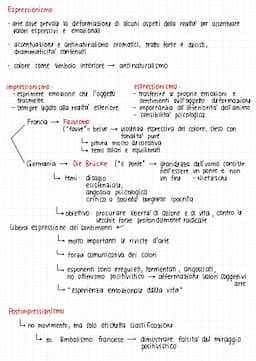 Espressionismo
- arte dove prevale la deformazione di alcuni aspetti della realtà per accentuare
valori espressivi e emozionali
- accentuazione e antinaturalismo cromatici, tratto forte e deciso,
drammaticità contenuti
- colore come simbolo interiore → antinaturalismo
impressionismo:
- esprimere emozione che l'oggetto
trasmette
- sempre legato alla realtà esteriore
espressionismo:
- trasferire le proprie emozioni e
sentimenti sull'oggetto deformazione
- importanza all'interiorità dell'animo
- sensibilità psicologica
Francia → Fauvismo
("fauve" = belve → violenza espressiva del colore, stesi con
tonalità pure
↳ pittura molto decorativa
↳ temi solari e equilibrati
Germania → Die Brücke ("il ponte" → grandezza dell'uomo consiste
nell'essere un ponte e non
un fine - Nietzsche
↳ temi: disagio
esistenziale,
angoscia psicologica
critica a società borghese ipocrita
↳ obiettivo: procurare libertà di azione e di vita, contro le
vecchie forze profondamente radicate
libera espressione dei sentimenti
↳ molto importanti le riviste d'arte
↳ forza comunicativa dei colori
↳ esponenti sono irregolari, tormentati, angosciati,
no ottimismo positivistico → affermazione valori soggettivi
arte
↳ "esperienza emozionale della vita"
Postimpressionismo
↳ no movimento, ma solo etichetta classificazioni
↳ es. Simbolismo francese → dimostrare falsità del miraggio
positivistico